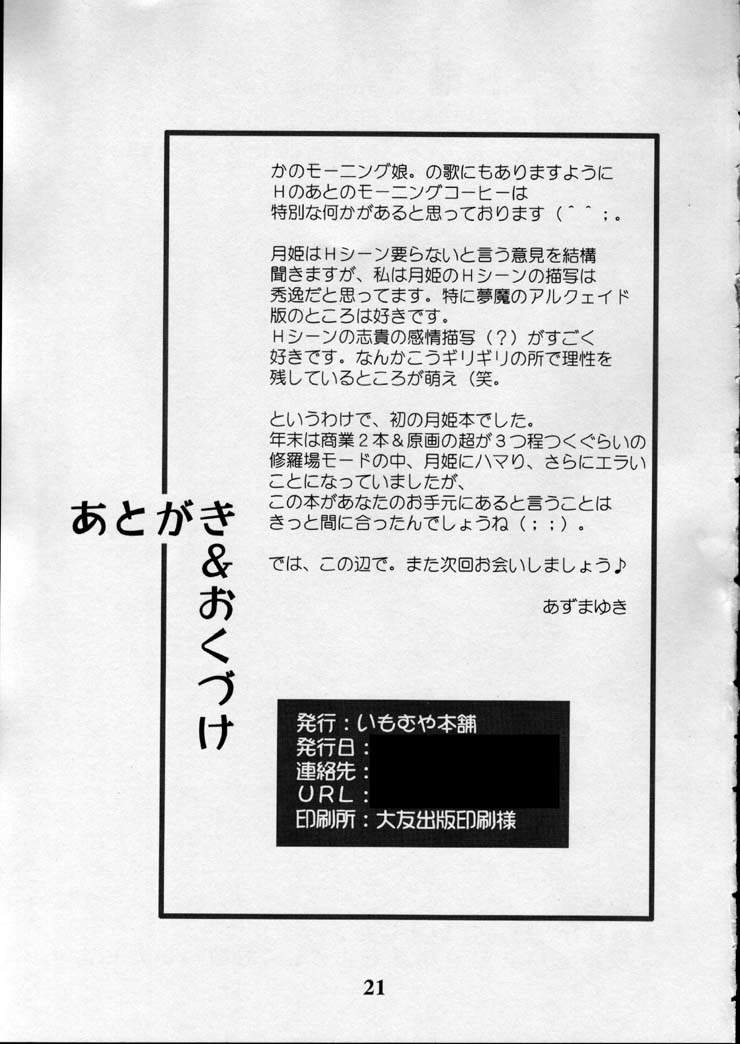 あとがき
＆おくづけ
かのモーニング娘。の歌にもありますように
Ｈのあとのモーニングコーヒーは
特別な何かがあると思っております（＾＾；。
月姫はＨシーン要らないと言う意見を結構
聞きますが、私は月姫のＨシーンの描写は
秀逸だと思ってます。特に夢魔のアルクェイド
版のところは好きです。
Ｈシーンの志貴の感情描写（？）がすごく
好きです。なんかこうギリギリの所で理性を
残しているところが萌え（笑。
というわけで、初の月姫本でした。
年末は商業２本＆原画の超が３つ程つくぐらいの
修羅場モードの中、月姫にハマり、さらにエラい
ことになっていましたが、
この本があなたのお手元にあると言うことは
きっと間に合ったんでしょうね（；；）。
では、この辺で。また次回お会いしましょう♪
あずまゆき
発行：いもむや本舗
発行日：
連絡先：
ＵＲＬ：
印刷所：大友出版印刷様
21